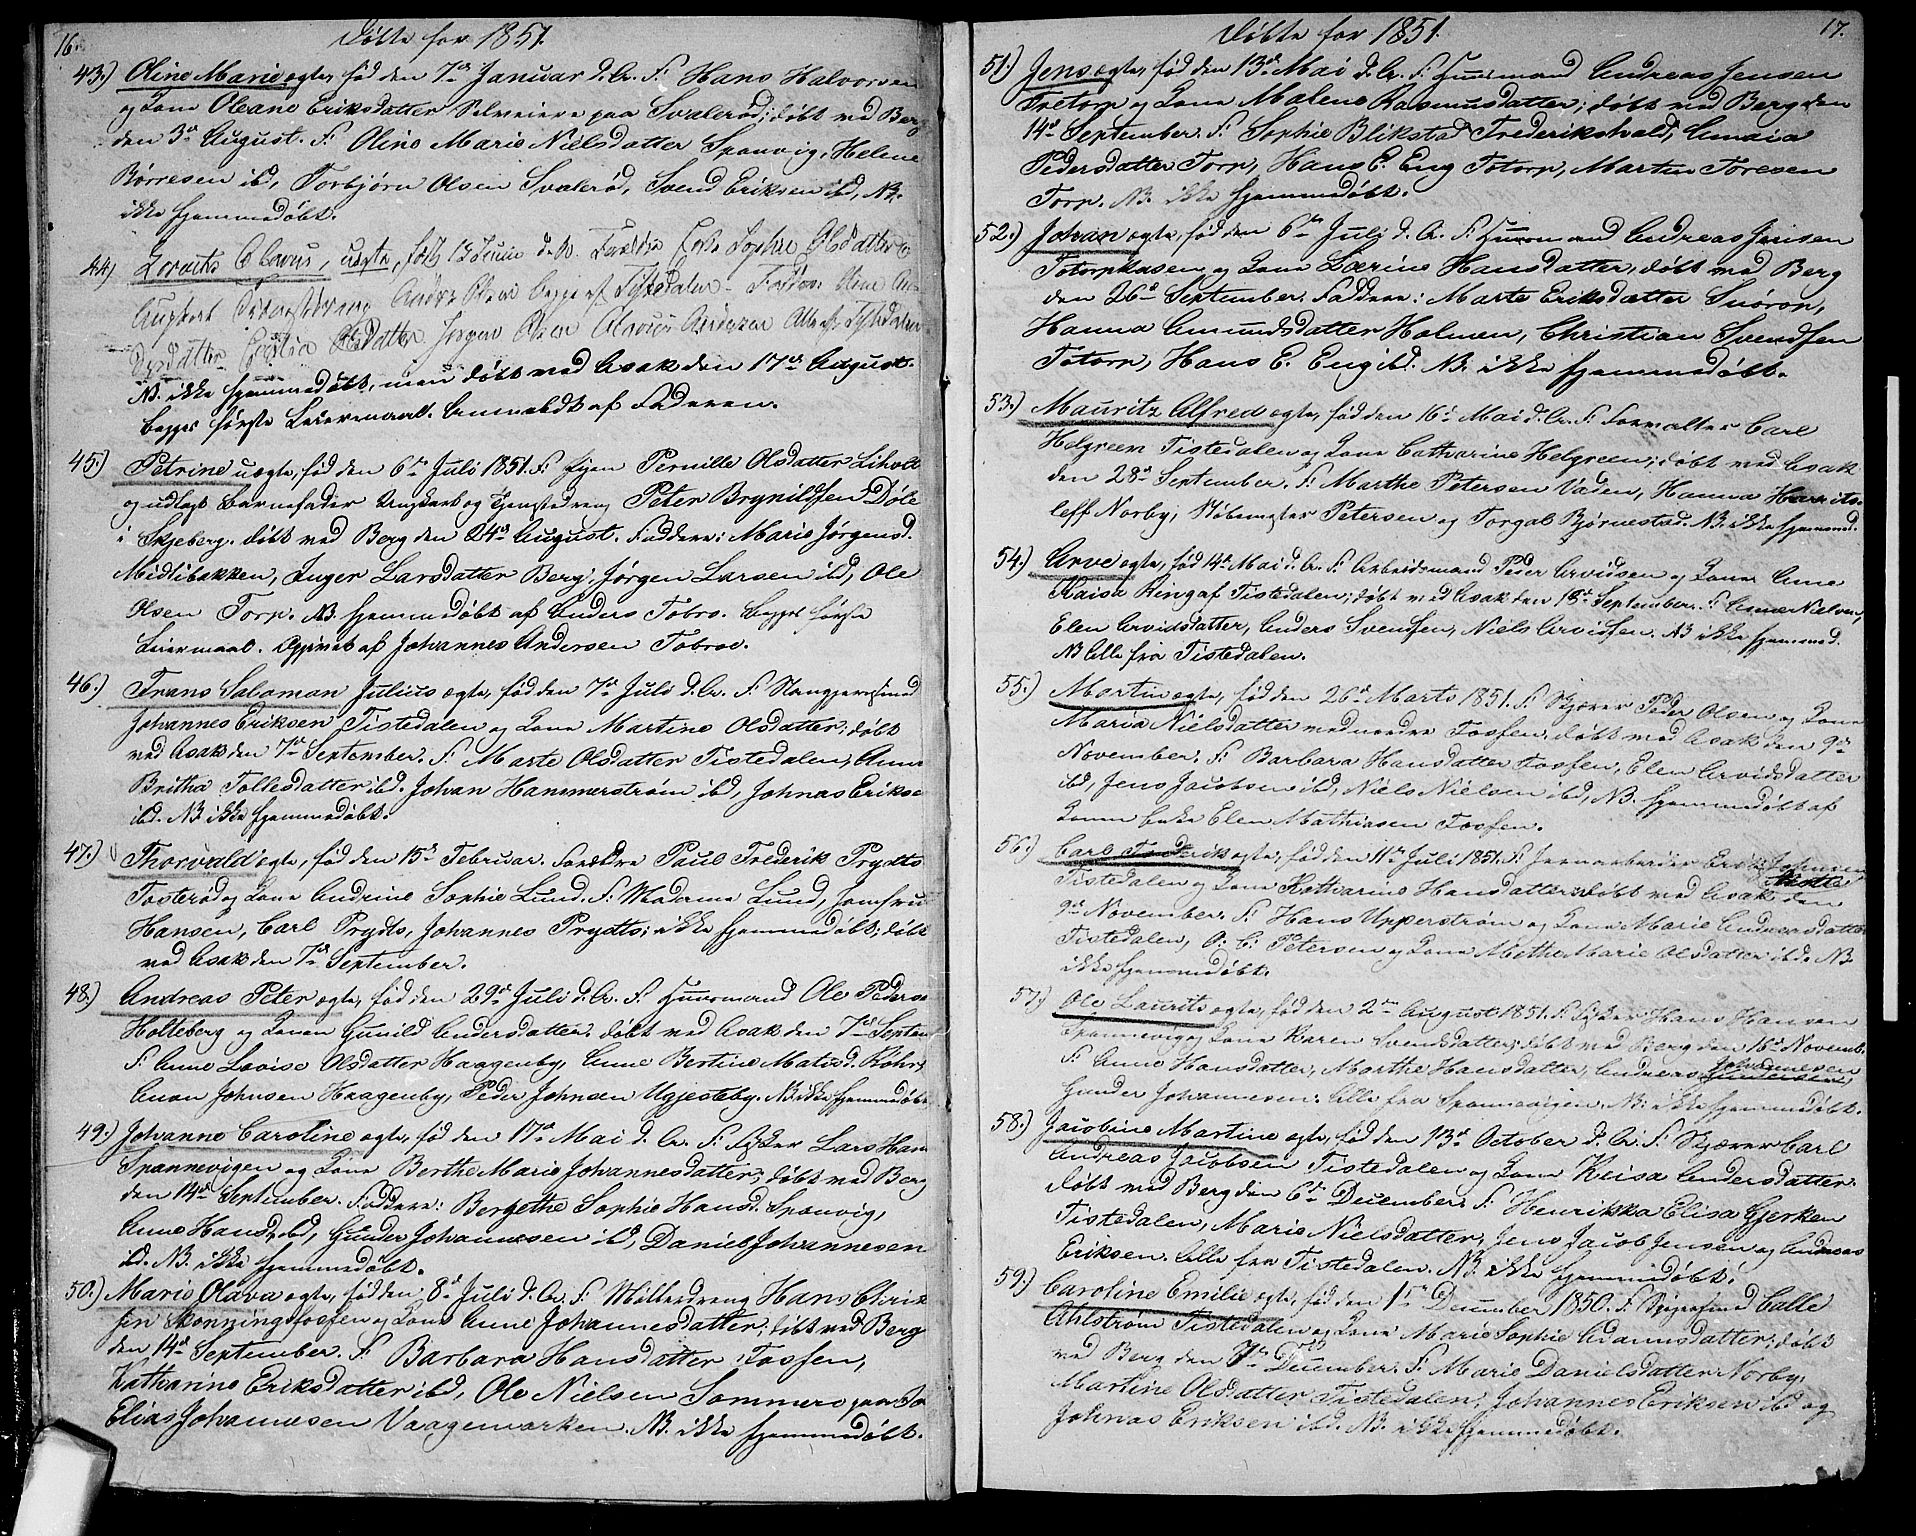 16.
Døbte for 1851.
43.) Oline Marie ægte, fød den 7de Januar d. A. F. Hans Halvorsen
og Kone Oleane Eriksdatter Selveiere paa Svalerød; døbt ved Berg
den 3de August. F. Oline Marie Nielsdatter Sponvig, Helene
Børresen ibd, Torbjørn Olsen Svalerød, Svend Eriksen ibd, NB.
ikke hjemmedøbt.
44) Olavus, uægte, født 13 Juni d. A. Forældre Sophie Olsdatter
Ungkarl Andrs Olsen begge af Tistedalen
Olsdatter Jørgen Olsen Olavus Alle af Tistedalen
NB. ikke hjemmedøbt, men døbt ved Asak den 17de August.
begges første Leiermaal. Anmeldt af Faderen.
45.) Petrine uægte, fød den 6te Juli 1851. F. Pigen Pernille Olsdatter Liholt
og udlagt Barnefader Ungkarl og Tjenestedreng Peter Brynildsen Døle
i Skjeberg. døbt ved Berg den 24de August. Faddere: Marie Jørgensd.
Midtibakken, Inger Larsdatter Berg, Jørgen Larsen ibd, Ole
Olsen Torp. NB. hjemmedøbt af Anders Tobro. Begges første
Leiermaal. Opgivet af Johannes Andersen Tobroe.
46.) Frans Salamon Julius ægte, fød den 7de Juli d. A. F. Stangjernsmed
Johannes Eriksen Tistedalen og Kone Martine Olsdatter; døbt
ved Asak den 7de September. F. Marte Olsdatter Tistedalen, Anne
Britha Tollesdatter ibd. Johan Hammerstrøm ibd, Johnas Erikse
ibd. NB. ikke hjemmedøbt.
47.) Thorvald ægte, fød den 15de Februar. Forældre Paul Frederik Prydts
Fosterød og Kone Andrine Sophie Lund. F. Madame Lund, Jomfru
Hansen, Carl Prydts, Johannes Prydts; ikke hjemmedøbt; døbt
ved Asak den 7de September.
48.) Andreas Peter ægte, fød den 29de Juli d. A. F. Huusmand Ole Peders
Holleberg og Konen Gunild Andersdatter. døbt ved Asak den 7de Septem
F. Anne Lovise Olsdatter Haagenby, Anne Bertine Matisd. Røhr,
Aron Johnsen Haagenby, Peder Johnsen Ugjesteby. NB. ikke hjemmedøbt
49.) Johanne Caroline ægte, fød den 17de Mai d. A. F. Fisker Lars Han
Sponnevigen og Kone Berthe Marie Johannesdatter; døbt ved Berg
den 14de September. Faddere: Bergethe Sophie Hansd. Sponvig,
Anne Hansd. ibd, Gunder Johannesen ibd, Daniel Johannesen
ibd. NB. ikke hjemmedøbt.
50.) Marie Olava ægte, fød den 8de Juli d. A. F. Møllerdreng Hans Chris
sen Skonningsfossen og Kone Anne Johannesdatter; døbt ved Berg
den 14de September. F. Barbara Hansdatter Fossen,
Katharine Eriksdatter ibd, Ole Nielsen Sommero
Elias Johannesen Vaagemarken. NB. ikke hjemmedøbt.
17.
Døbte for 1851.
51.) Jens ægte, fød den 13de Mai d. A. F. Huusmand Andreas Jensen
Tretorp og Kone Malene Rasmusdatter; døbt ved Berg den
14de September. F. Sophie Blikstad Frederikshald, Amaia
Pedersdatter Torp, Hans E. Eng Totorp, Martin Toresen
Torp. NB. ikke hjemmedøbt.
52.) Johan ægte, fød den 6te Juli d. A. F. Huusmand Andreas Jensen
Totorpkasen og Kone Lærine Hansdatter, døbt ved Berg
den 26de September. Faddere: Marte Eriksdatter Snøron,
Hanna Amundsdatter Holmen, Christian Svendsen
Totorp, Hans E. Eng ibd. NB. ikke hjemmedøbt.
53.) Mauritz Alfred ægte, fød den 16de Mai d. A. F. Forvalter Carl
Helgreen Tistedalen og Kone Catharine Helgreen; døbt ved Asak
den 28de September. F. Marthe Petersen Vaden, Hanna
leff Norby; Petersen og Torgal Bjørnestad. NB. ikke hjemmed.
54.) Arve ægte, fød 14de Mai d. A. F. Arbeidsmand Peder Arvidsen og Kone Anne
Kaisa Ring af Tistedalen; døbt ved Asak den 15de September. F. Asmer Nielsen,
Elen Arvidsdatter, Anders Svensen, Niels Arvidsen. NB ikke hjemmed.
NB Alle fra Tistedalen.
55.) Martin ægte, fød den 26de Marts 1851. F. Skjærer Peder Olsen og Kone
Maria Nielsdatter ved nordre Fossen. døbt ved Asak den 9de
November. F. Barbara Hansdatter Fossen, Elen Arvidsdatter
ibd, Jens Jacobsen ibd, Niels Nielsen ibd, NB. hjemmedøbt af
Elen Mathiasen Fossen.
56.) Carl Frederik ægte, fød den 11te Juli 1851. F. Jernarbeider Erik Johansen
Tistedalen og Kone Katharine Hansdatter døbt ved Asak den
9de November. F. Hans Upperstrøm og Kone Marie Andreasdatter
Tistedalen, O. C. Petersen og Kone Mathe Marie Olsdatter ibd. NB.
ikke hjemmedøbt.
57.) Ole Laurits ægte, fød den 2den August 1851. F. Fisker Hans Hansen
Sponnevig og Kone Karen Svendsdatter; døbt ved Berg den 16de Novemb.
F. Anne Hansdatter, Marthe Hansdatter, Andreas Johannesen
Gunder Johannesen. Alle fra Sponnevigen. NB. ikke hjemmedøbt.
58.) Jacobine Martine ægte, fød den 13de October d. A. F. Skjærer Carl
Andreas Jacobsen Tistedalen og Kone Keisa Andersdatter.
døbt ved Berg den 6te December. F. Henrikka Elisa Gjerken
Tistedalen, Marie Nielsdatter, Jens Jacob Jensen og Andreas
Eriksen. Alle fra Tistedalen. NB. ikke hjemmedøbt.
59.) Caroline Emilie ægte, fød den 1ste December 1850. F. Spigersmed Calle
Ahlstrøm Tistedalen og Kone Marie Sophie Adamsdatter; døbt
ved Berg den 7de December. F. Marie Danielsdatter Norby,
Martine Olsdatter Tistedalen, Johannes Eriksen ibd og
Johnas Eriksen ibd. NB. ikke hjemmedøbt.